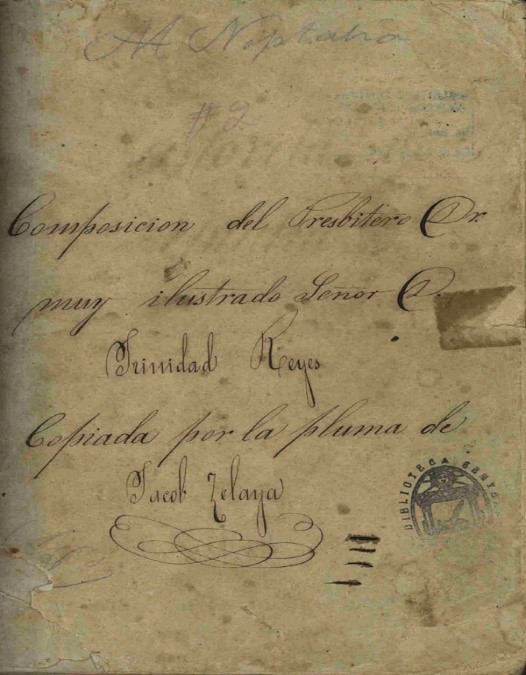 #2
Composicion del Presbitero Dr.
muy ilustrado Señor D.
Trinidad Reyes
Copiada por la pluma de
Jacob Zelaya
BIBLIOTECA